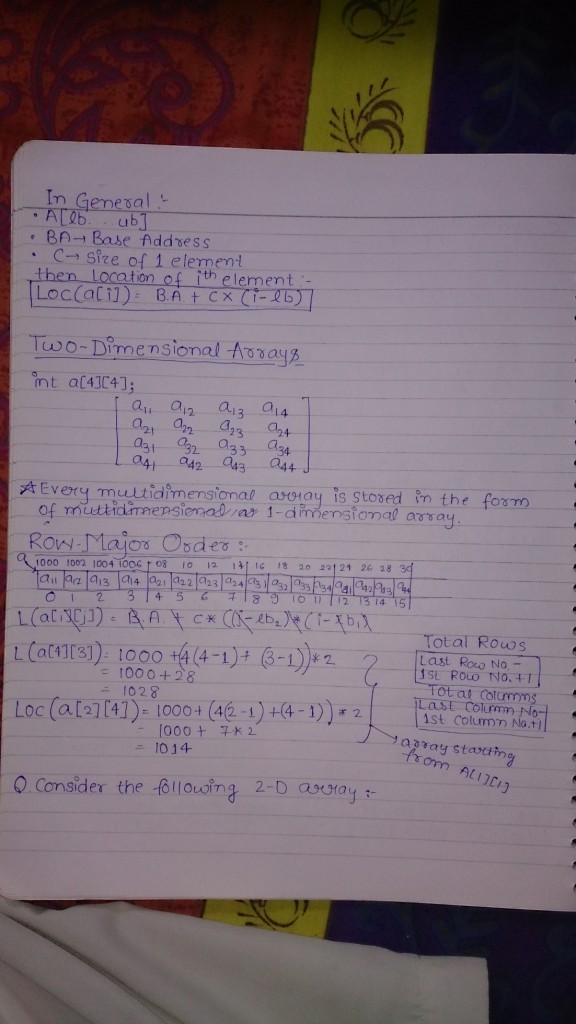 In General :-
• A[lb...ub]
• BA → Base Address
• C → size of 1 element
then Location of ith element :-
Loc(a[i]) = B.A. + C × (i-lb)
Two-Dimensional Arrays
int a[4][4];
a11 a12 a13 a14
a21 a22 a23 a24
a31 a32 a33 a34
a41 a42 a43 a44
Every multidimensional array is stored in the form
of multidimensional as 1-dimensional array.
Row-Major Order :-
a 1000 1002 1004 1006 08 10 12 14 16 18 20 22 24 26 28 30
a11 a12 a13 a14 a21 a22 a23 a24 a31 a32 a33 a34 a41 a42 a43 a44
0 1 2 3 4 5 6 7 8 9 10 11 12 13 14 15
L(a[i][j]) = B.A. + C*
Total Rows
L(a[4][3]) = 1000 + (4(4-1) + (3-1)) * 2
Last Row No. -
1st Row No. + 1
= 1000 + 28
= 1028
Total columns
Last Column No -
1st Column No. + 1
Loc(a[2][4]) = 1000 + (4(2-1) + (4-1)) * 2
= 1000 + 7*2
= 1014
array starting
from A[1][1]
Q. Consider the following 2-D array :-